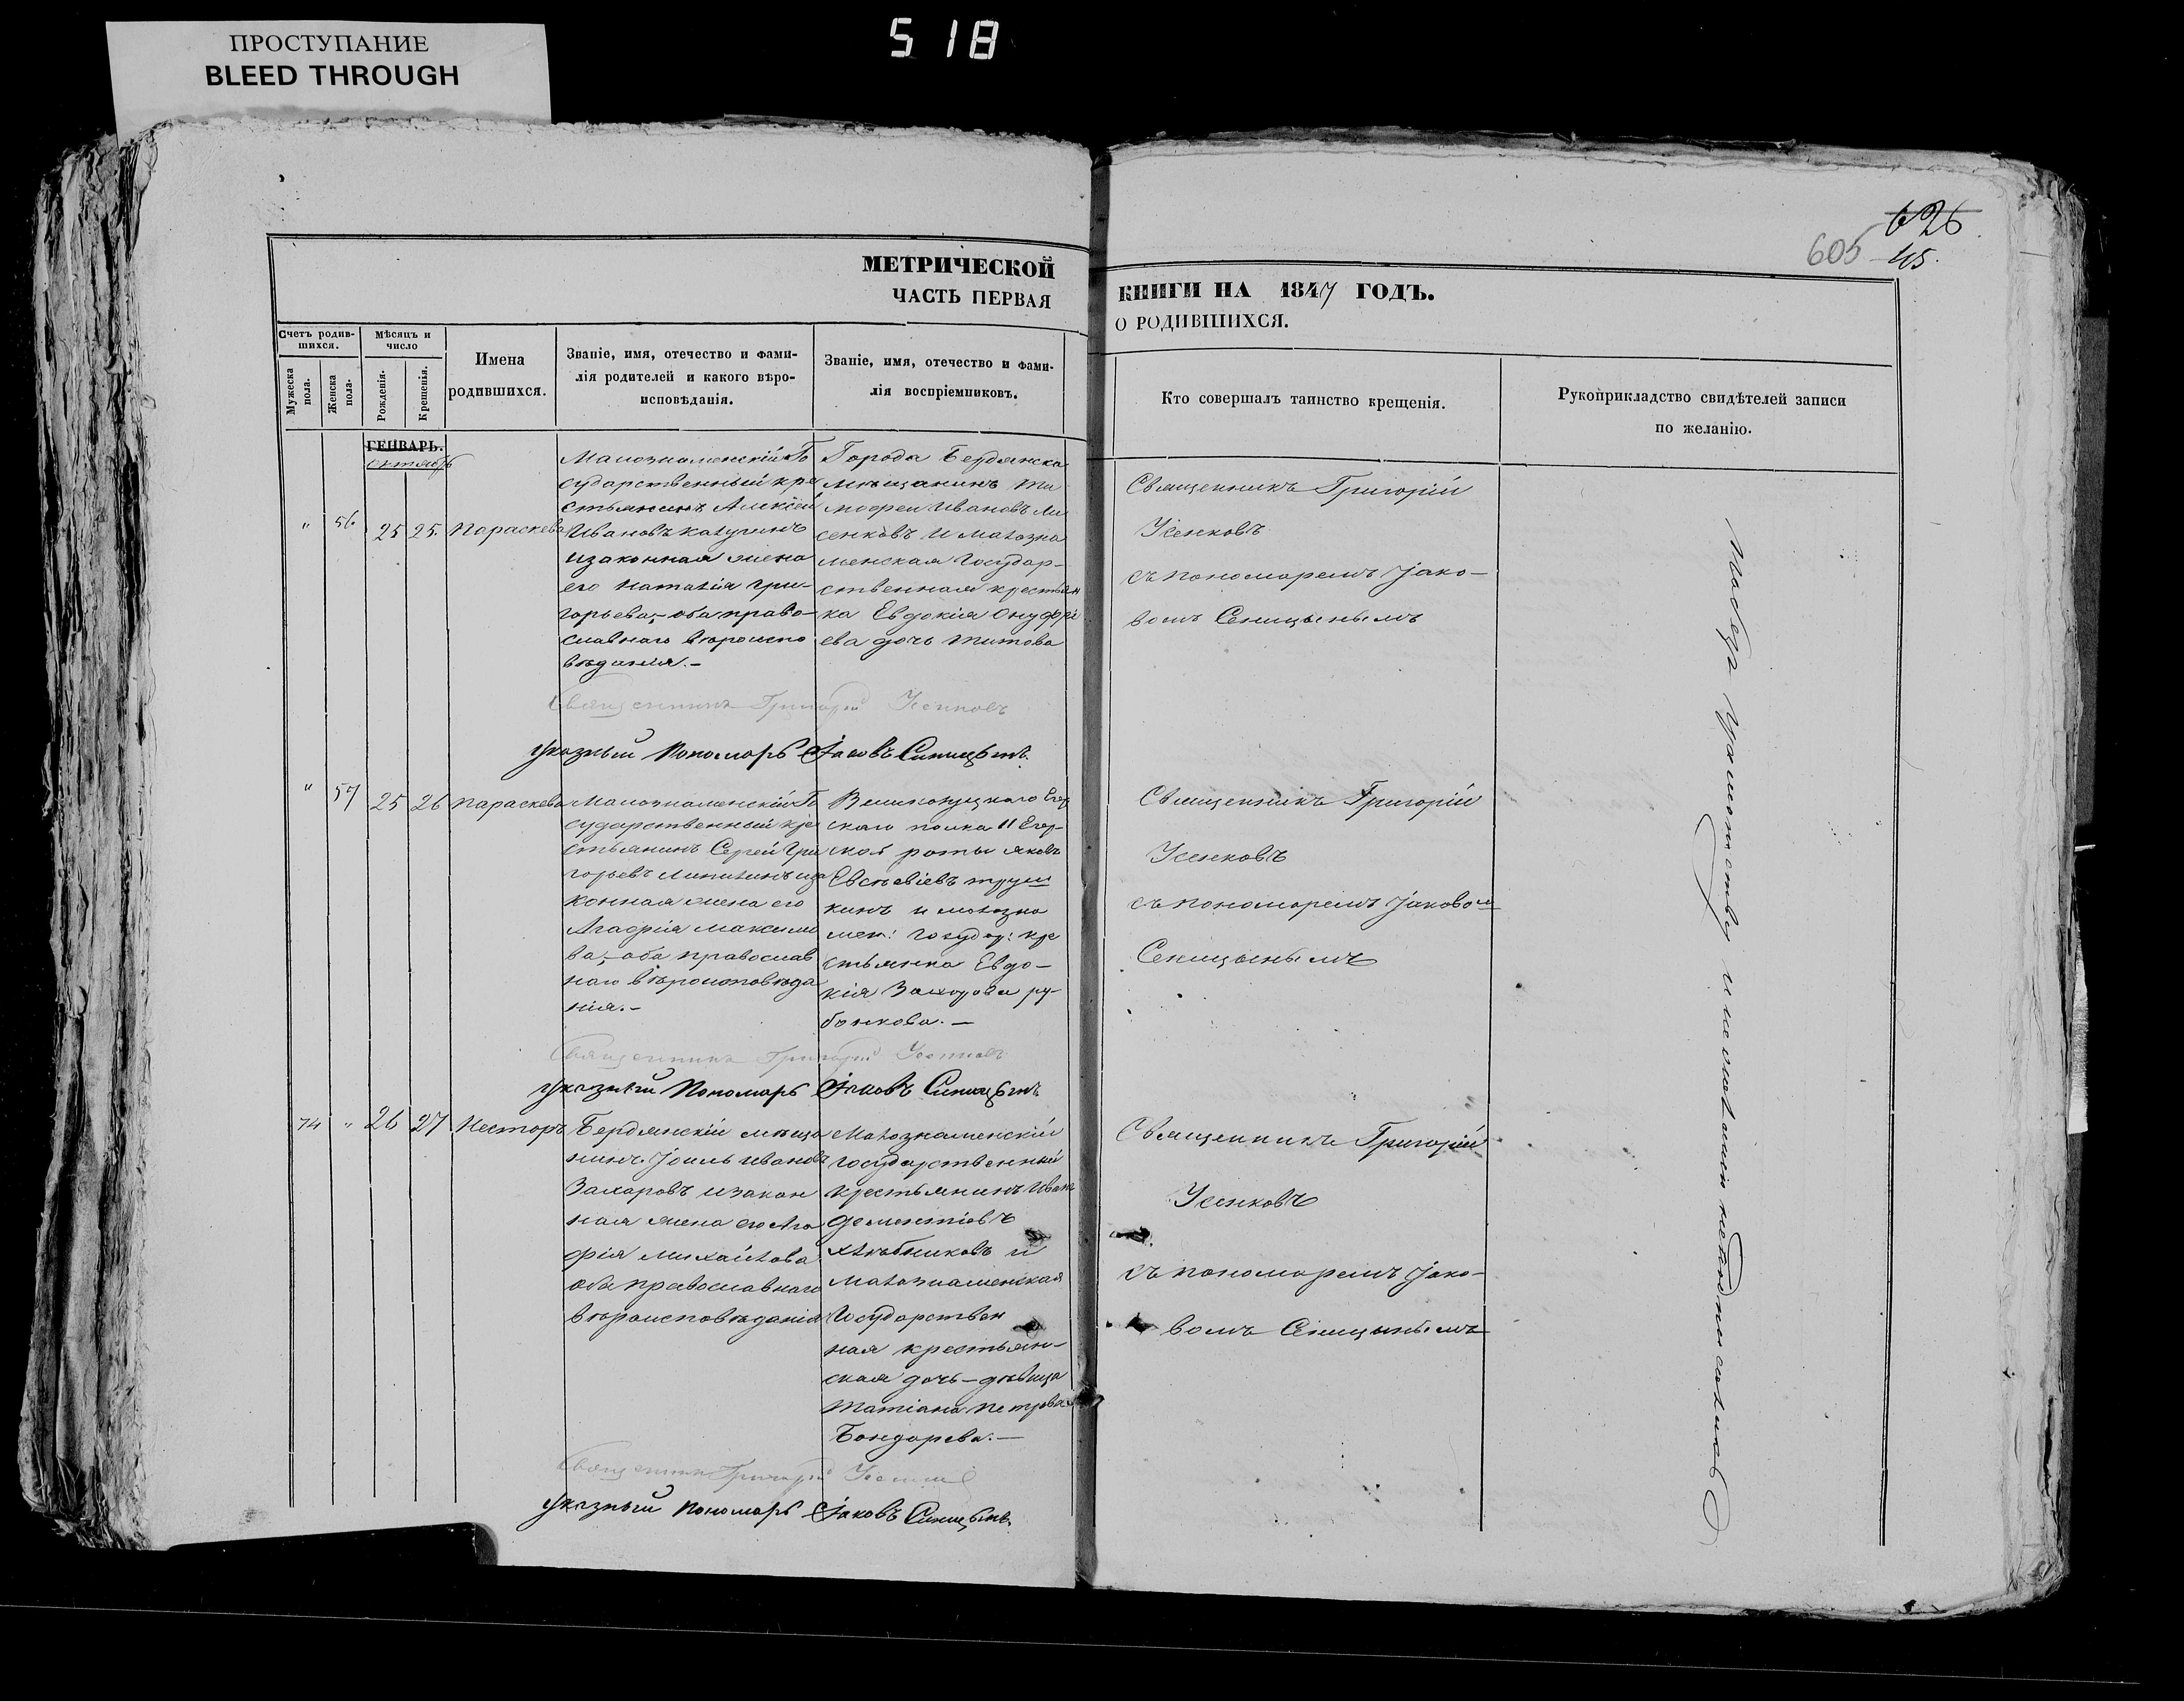 ПРОСТУПАНИЕ
BLEED THROUGH
518
626
605 45.
МЕТРИЧЕСКОЙ
ЧАСТЬ ПЕРВАЯ
КНИГИ НА 1847 ГОДЪ.
О РОДИВШИХСЯ.
Счетъ родив-
шихся.
Мужеска
пола.
Женска
пола.
Мѣсяцъ и
число
Рожденія.
Крещенія.
Имена
родившихся.
Званіе, имя, отечество и фами-
лія родителей и какого вѣро-
исповѣданія.
Званіе, имя, отечество и фами-
лія воспріемниковъ.
Кто совершалъ таинство крещенія.
Рукоприкладство свидѣтелей записи
по желанію.
ГЕНВАРЬ.
октябрь
" 56 25 25. Параскева
Малознаменскій Го
сударственный кре
стьянинъ Алексій
Ивановъ Калугинъ
изаконная жена
его Наталія Гри-
горьева,- оба право-
славнаго вѣроиспо
вѣданія.-
Города Бердянска
мѣщанинъ Ти
мофей Ивановъ Ли
сенковъ и малозна
менская Государ-
ственная крестьян
ка Евдокія Онуфрі
ева дочь Титова
Священникъ Григорій
Усенковъ
съ пономаремъ Іако-
вомъ Сеницынымъ
Священникъ Григорій Усенковъ
указный Пономарь Іаковъ Синицынъ.
" 57 25 26 Параскева
Малознаменскій Го
сударственный кре
стьянинъ Сергей Гри
горьевъ Липилинъ иза
конная жена его
Агафія Максимо
ва,- оба православ
наго вѣроисповѣда
нія.-
Великолуцкаго Егер
скаго полка 11 Егер-
ской роты Яковъ
Евсѣевіевъ
кинъ и малозна
мен: государ: кре
стьянка Евдо-
кія Захарова ру-
банкова.-
Священникъ Григорій
Усенковъ
съ пономаремъ Іаковом
Сеницынымъ
Священникъ Григорій Усенковъ
указный Пономарь Іаковъ Синицынъ
74 " 26 27 Несторъ
Бердянскій мѣща
нинъ Іоиль Ивановъ
Захаровъ изакон
ная жена его Ага
фія Михайлова
оба православнаго
вѣроисповѣданія
Малознаменскій
государственный
крестьянинъ Иванъ
Дементіевъ
Хлѣбниковъ и
малознаменская
Государствен
ная крестьян-
ская дочь-дѣвица
Татіана Петрова
Бондарева.-
Священникъ Григорій
Усенковъ
съ пономаремъ Іако-
вомъ Сеницынымъ
Священникъ Григорій Усенковъ
указный Пономарь Іаковъ Синицынъ.